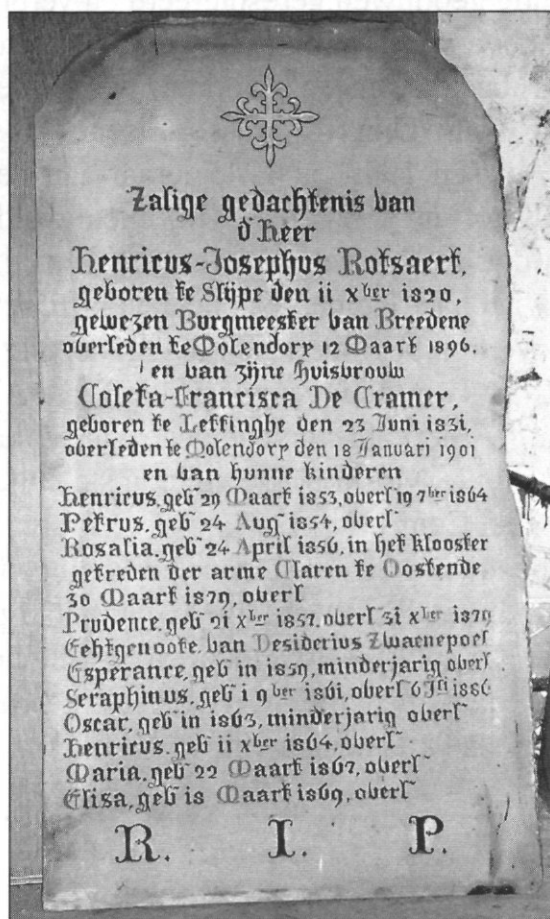 Zalige gedachtenis van
d'Heer
Henricus-Josephus Rotsaert,
geboren te Slÿpe den ii xber 1820,
gewezen Burgmeester van Breedene
overleden te Molendorp 12 Maart 1896.
en van zÿne huisvrouw
Coleta-Francisca De Cramer,
geboren te Leffinghe den 23 Juni 1831,
overleden te Molendorp den 18 Januari 1901
en van hunne kinderen
Henricus, geb 29 Maart 1853, overl 19 7ber 1864
Petrus, geb 24 Aug 1854, overl
Rosalia, geb 24 April 1856, in het klooster
getreden der arme Claren te Oostende
30 Maart 1879, overl
Prudence, geb 21 xber 1857, overl 31 xber 1879
Echtgenoote van Desiderius Zwaenepoel
Esperance, geb in 1859, minderjarig overl
Seraphinus, geb 1 9ber 1861, overl 6 Jli 1886
Oscar, geb in 1863, minderjarig overl
Henricus, geb ii xber 1864, overl
Maria, geb 22 Maart 1867, overl
Elisa, geb 18 Maart 1869, overl
R. I. P.